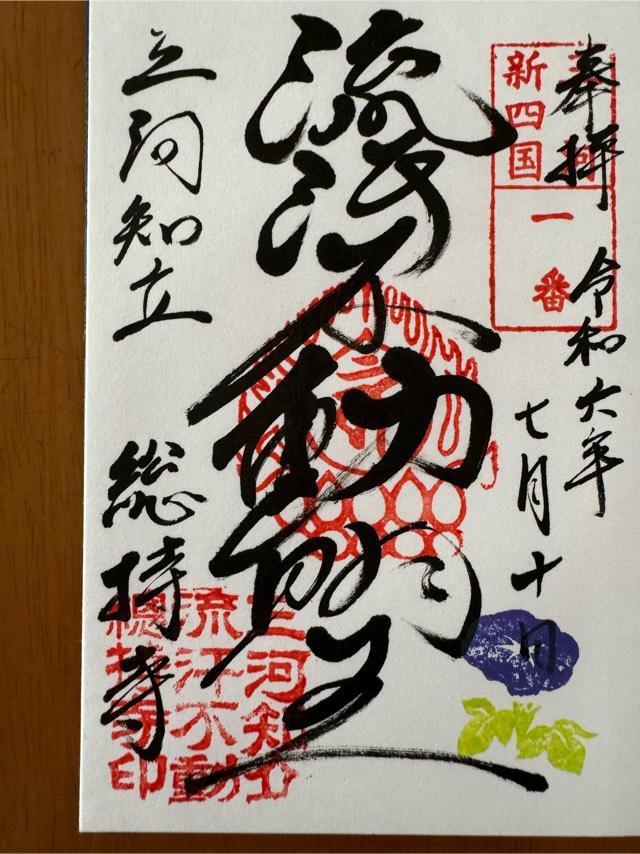 奉拝
令和六年
七月十日
三河
新四国
一番
流汗不動明王
三河知立
総持寺
三河知立
流汗不動
總持寺印